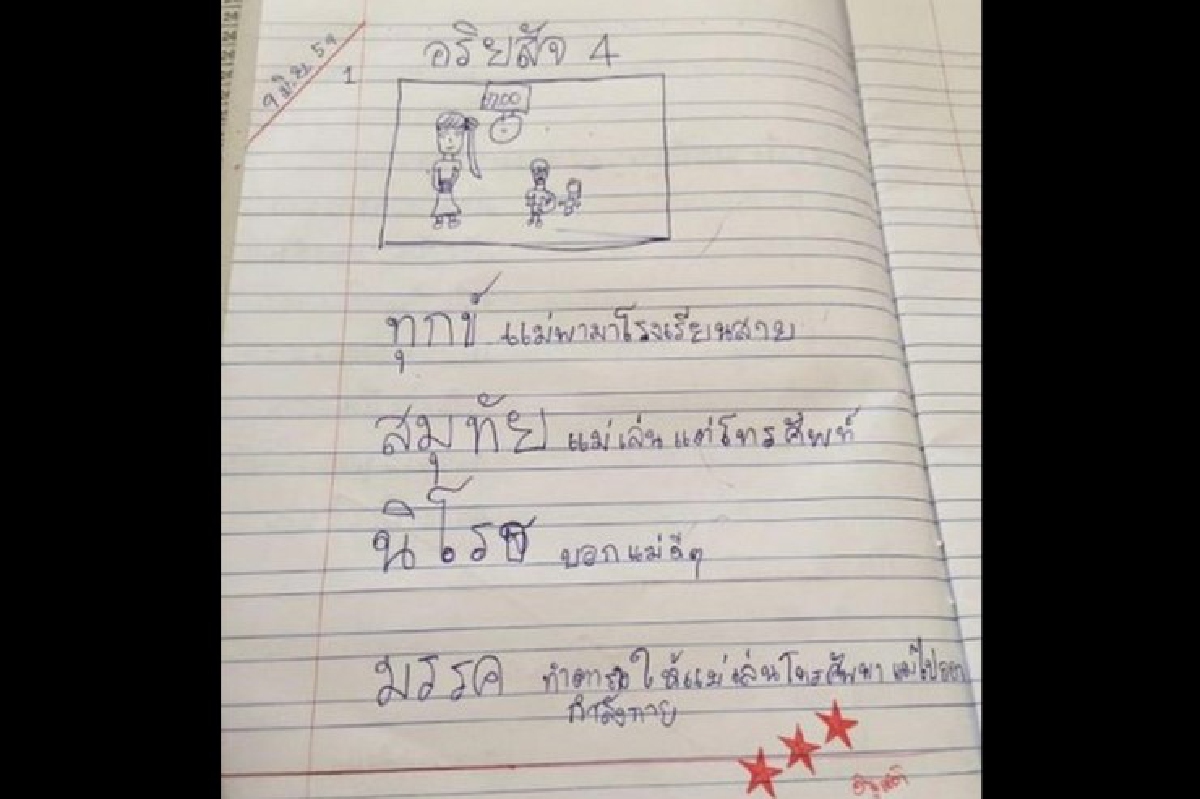 9 มิ.ย. 59
อริยสัจ 4
1
ทุกข์ แม่พามาโรงเรียนสาย
สมุทัย แม่เล่นแต่โทรศัพท์
นิโรธ บอกแม่ดีๆ
มรรค ให้แม่เล่นโทรศัพท์ แม่ไปออก
กำลังกาย